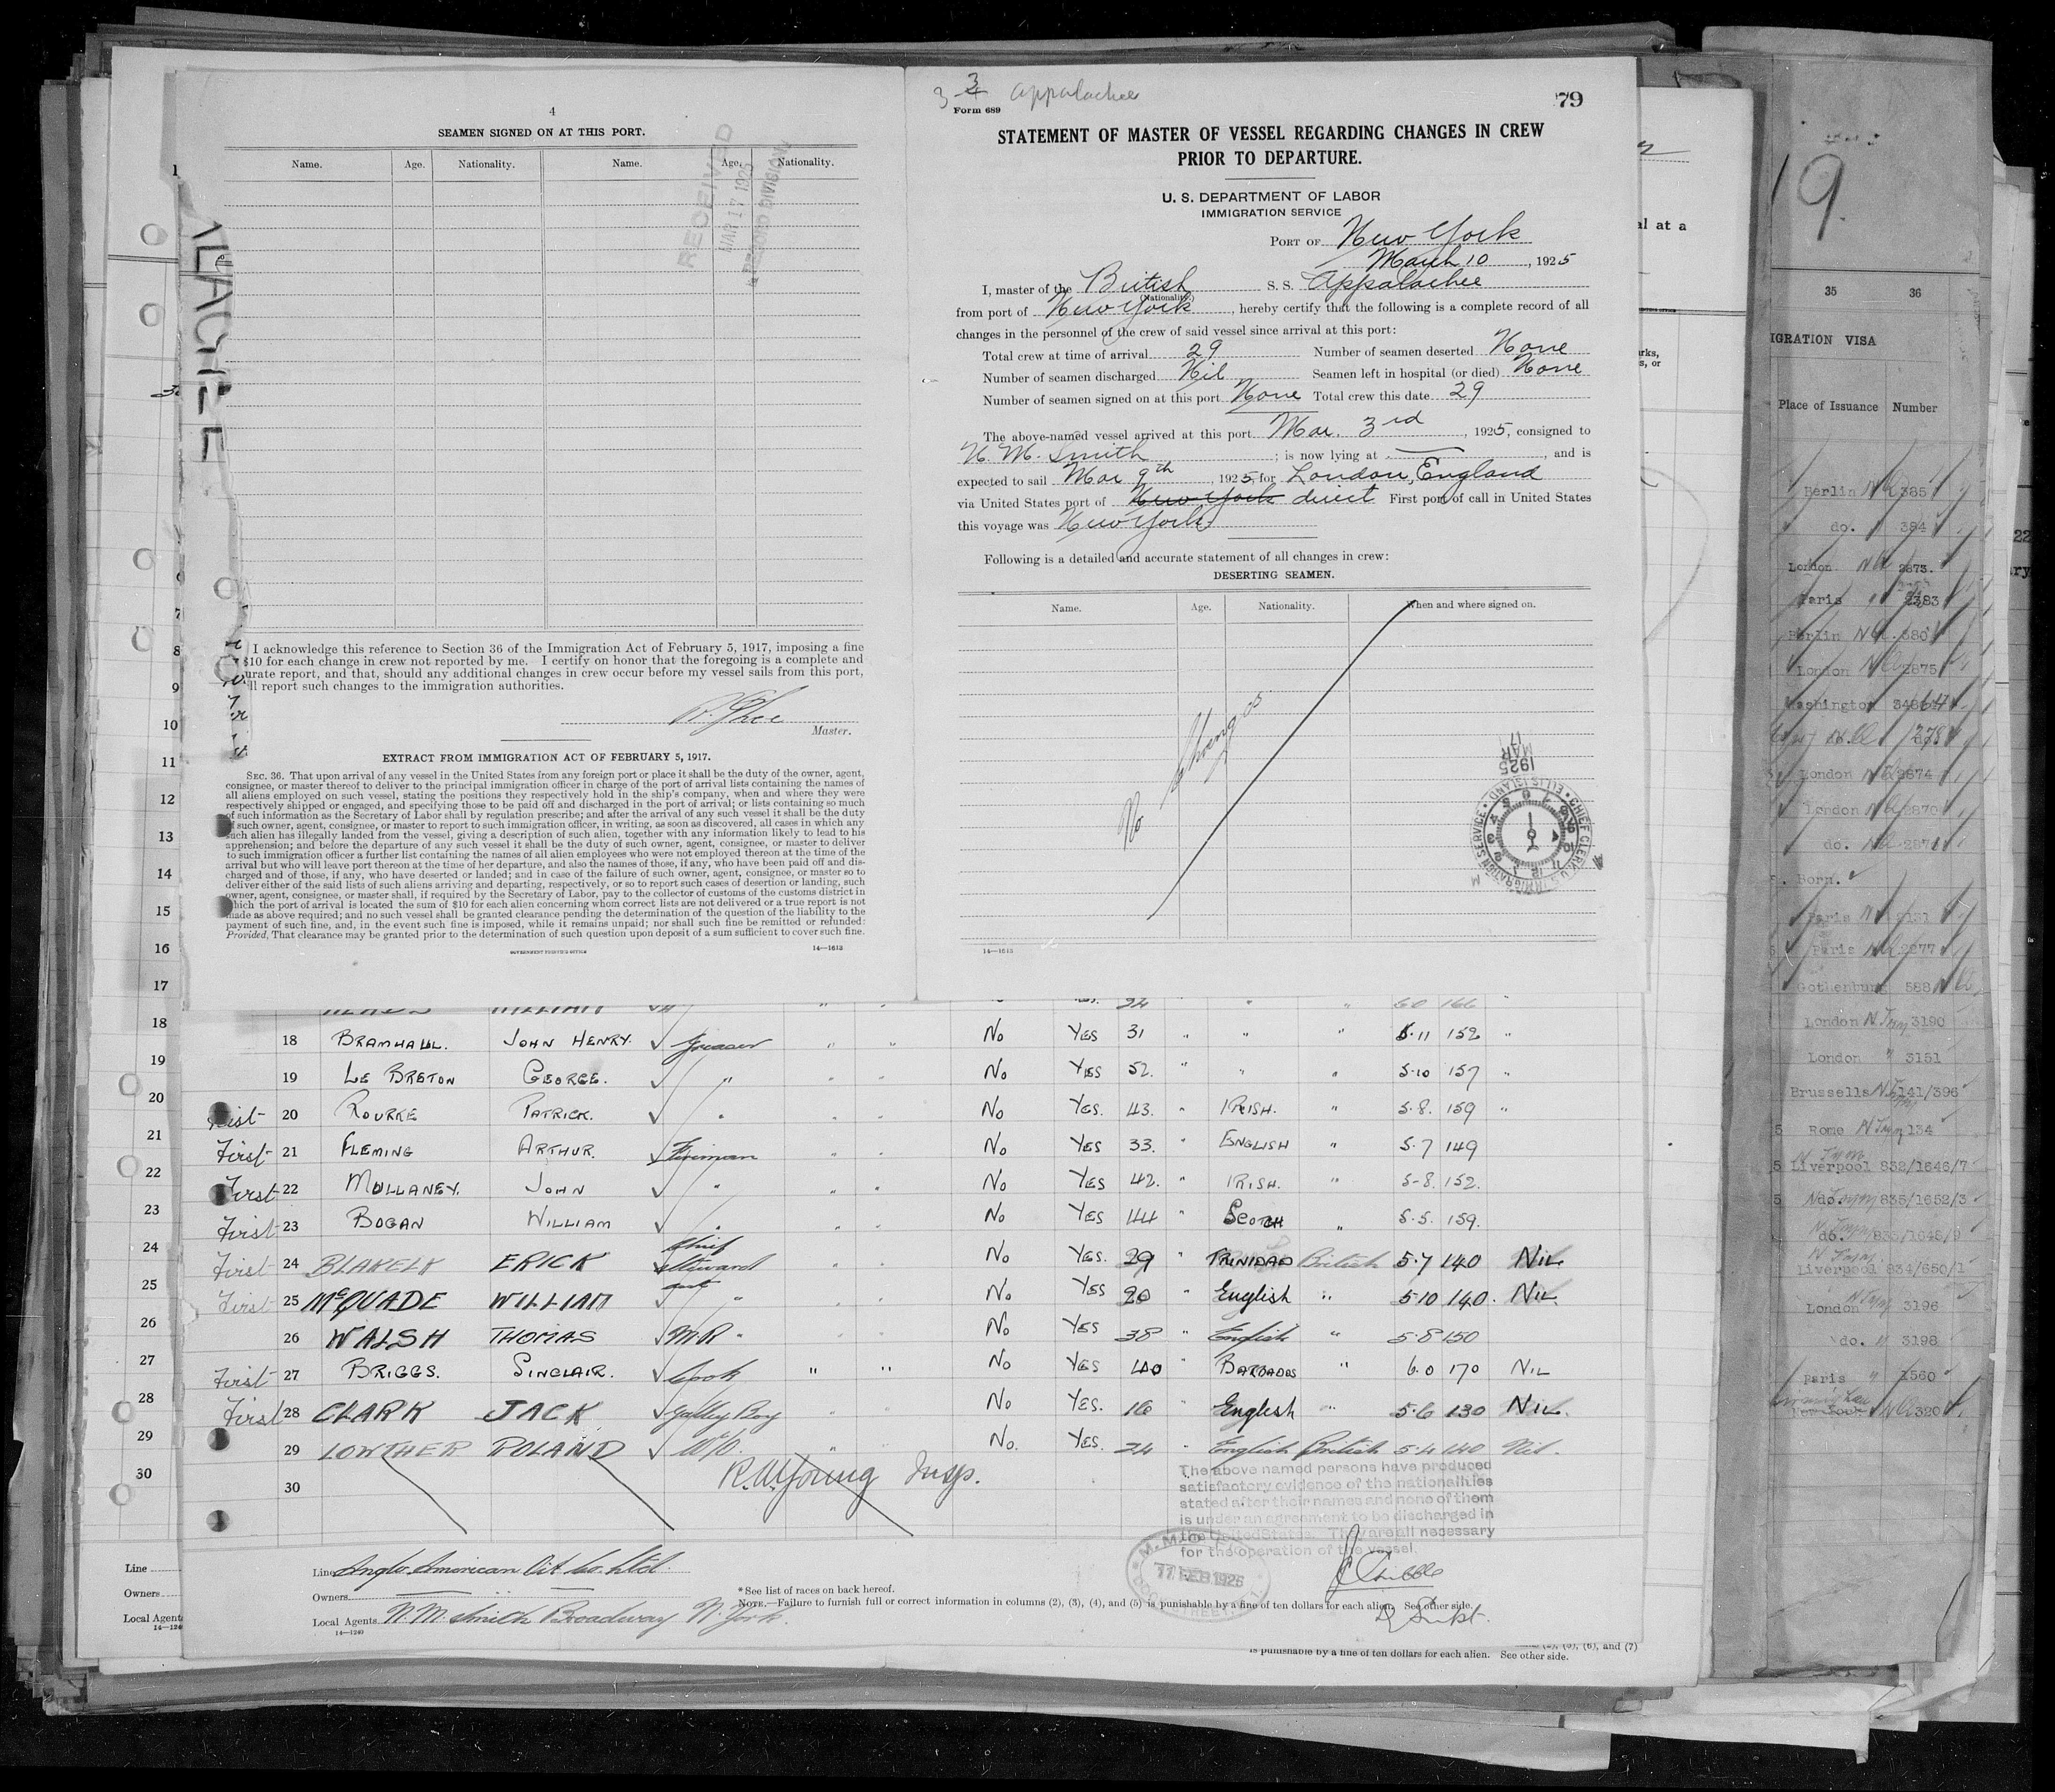 4
SEAMEN SIGNED ON AT THIS PORT.
Name. Age. Nationality. Name. Age. Nationality.
RECEIVED
MAR 17 1925
RECORD DIVISION
I acknowledge this reference to Section 36 of the Immigration Act of February 5, 1917, imposing a fine
$10 for each change in crew not reported by me. I certify on honor that the foregoing is a complete and
urate report, and that, should any additional changes in crew occur before my vessel sails from this port,
ll report such changes to the immigration authorities.
Master.
EXTRACT FROM IMMIGRATION ACT OF FEBRUARY 5, 1917.
SEC. 36. That upon arrival of any vessel in the United States from any foreign port or place it shall be the duty of the owner, agent,
consignee, or master thereof to deliver to the principal immigration officer in charge of the port of arrival lists containing the names of
all aliens employed on such vessel, stating the positions they respectively hold in the ship's company, when and where they were
respectively shipped or engaged, and specifying those to be paid off and discharged in the port of arrival; or lists containing so much
of such information as the Secretary of Labor shall by regulation prescribe; and after the arrival of any such vessel it shall be the duty
of such owner, agent, consignee, or master to report to such immigration officer, in writing, as soon as discovered, all cases in which any
such alien has illegally landed from the vessel, giving a description of such alien, together with any information likely to lead to his
apprehension; and before the departure of any such vessel it shall be the duty of such owner, agent, consignee, or master to deliver
to such immigration officer a further list containing the names of all alien employees who were not employed thereon at the time of the
arrival but who will leave port thereon at the time of her departure, and also the names of those, if any, who have been paid off and dis-
charged and of those, if any, who have deserted or landed; and in case of the failure of such owner, agent, consignee, or master so to
deliver either of the said lists of such aliens arriving and departing, respectively, or so to report such cases of desertion or landing, such
owner, agent, consignee, or master shall, if required by the Secretary of Labor, pay to the collector of customs of the customs district in
which the port of arrival is located the sum of $10 for each alien concerning whom correct lists are not delivered or a true report is not
made as above required; and no such vessel shall be granted clearance pending the determination of the question of the liability to the
payment of such fine, and, in the event such fine is imposed, while it remains unpaid; nor shall such fine be remitted or refunded:
Provided, That clearance may be granted prior to the determination of such question upon deposit of a sum sufficient to cover such fine.
GOVERNMENT PRINTING OFFICE 14—1613
3 Appalachee
Form 689
79
STATEMENT OF MASTER OF VESSEL REGARDING CHANGES IN CREW
PRIOR TO DEPARTURE.
U. S. DEPARTMENT OF LABOR
IMMIGRATION SERVICE
PORT OF New York
March 10, 1925
I, master of the British S. S. Appalachee
(Nationality.)
from port of New York, hereby certify that the following is a complete record of all
changes in the personnel of the crew of said vessel since arrival at this port:
Total crew at time of arrival 29 Number of seamen deserted None
Number of seamen discharged Nil Seamen left in hospital (or died) None
Number of seamen signed on at this port None Total crew this date 29
The above-named vessel arrived at this port Mar. 3rd, 1925, consigned to
N. M. Smith; is now lying at —, and is
expected to sail Mar 9th, 1925, for London, England
via United States port of New York direct First port of call in United States
this voyage was New York
Following is a detailed and accurate statement of all changes in crew:
DESERTING SEAMEN.
Name. Age. Nationality. When and where signed on.
No changes
1925
MAR 17
CHIEF CLERK, U.S. IMMIGRATION SERVICE
ELLIS ISLAND
14—1613
24 " " " 60 166 "
18 BRAMHALL. JOHN HENRY. Greaser " " No YES 31 " " " 5.11 152 "
19 LE BRETON GEORGE. " " " No YES 52. " " " 5.10 157 "
First 20 ROURKE PATRICK. " " " No YES. 43. " IRISH. " 5.8. 159 "
First 21 FLEMING ARTHUR. Fireman " " No YES 33. " ENGLISH " 5.7 149
First 22 MULLANEY. JOHN " " " No YES 42. " IRISH. " 5-8. 152.
First 23 BOGAN WILLIAM " " " No YES 44 " SCOTCH " 5.5. 159.
First 24 BLAKELY ERICK Chief Steward " " No YES. 29 " TRINIDAD British 5.7 140 NIL
First 25 McQUADE WILLIAM asst " No YES 20 " English " 5 10 140. NIL
26 WALSH THOMAS M.R " " " No YES 38 " English " 5.8 150
First 27 BRIGGS. SINCLAIR. Cook " " No YES 40 " BARBADOS " 6.0 170 NIL
First 28 CLARK JACK Galley Boy " " No YES. 16 " English " 5.6 130 NIL.
29 LOWTHER ROLAND W/O. " No. YES. 24 " English British 5.4 140 Nil.
30 R.A. Young Insp.
The above named persons have produced
satisfactory evidence of the nationalities
stated after their names and none of them
is under an agreement to be discharged in
the United States. They are all necessary
for the operation of the vessel.
Line Anglo-American Oil Co. Ltd.
Owners
Local Agents N. M. Smith Broadway N. York.
14—1240
* See list of races on back hereof.
NOTE.—Failure to furnish full or correct information in columns (2), (3), (4), and (5) is punishable by a fine of ten dollars for each alien. See other side.
is punishable by a fine of ten dollars for each alien. See other side.
Line
Owners
Local Agent
1
7
8
9
10
11
12
13
14
15
16
17
18
19
20
21
22
23
24
25
26
27
28
29
30
al at a
19.
35 36
IGRATION VISA
Place of Issuance Number
Berlin 385
do. 384
London 2873.
Paris 2383
Berlin 380
London 2875
Washington
London 2874
London 2870
do. 2871
Born.
Paris
Paris 2977
Gothenburg 588
London 3190
London " 3151
Brussells 141/396
Rome 134
Liverpool 832/1646/7
do. 835/1652/3
do.
Liverpool 834/650/1
London 3196
do. " 3198
Paris " 1560
New York 320